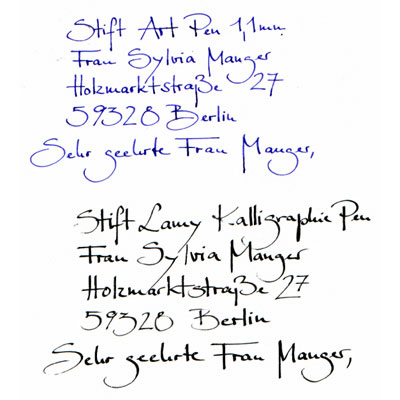 Stift Art Pen 1,1mm
Frau Sylvia Manger
Holzmarktstraße 27
59328 Berlin
Sehr geehrte Frau Manger,
Stift Lamy Kalligraphie Pen
Frau Sylvia Manger
Holzmarktstraße 27
59328 Berlin
Sehr geehrte Frau Manger,